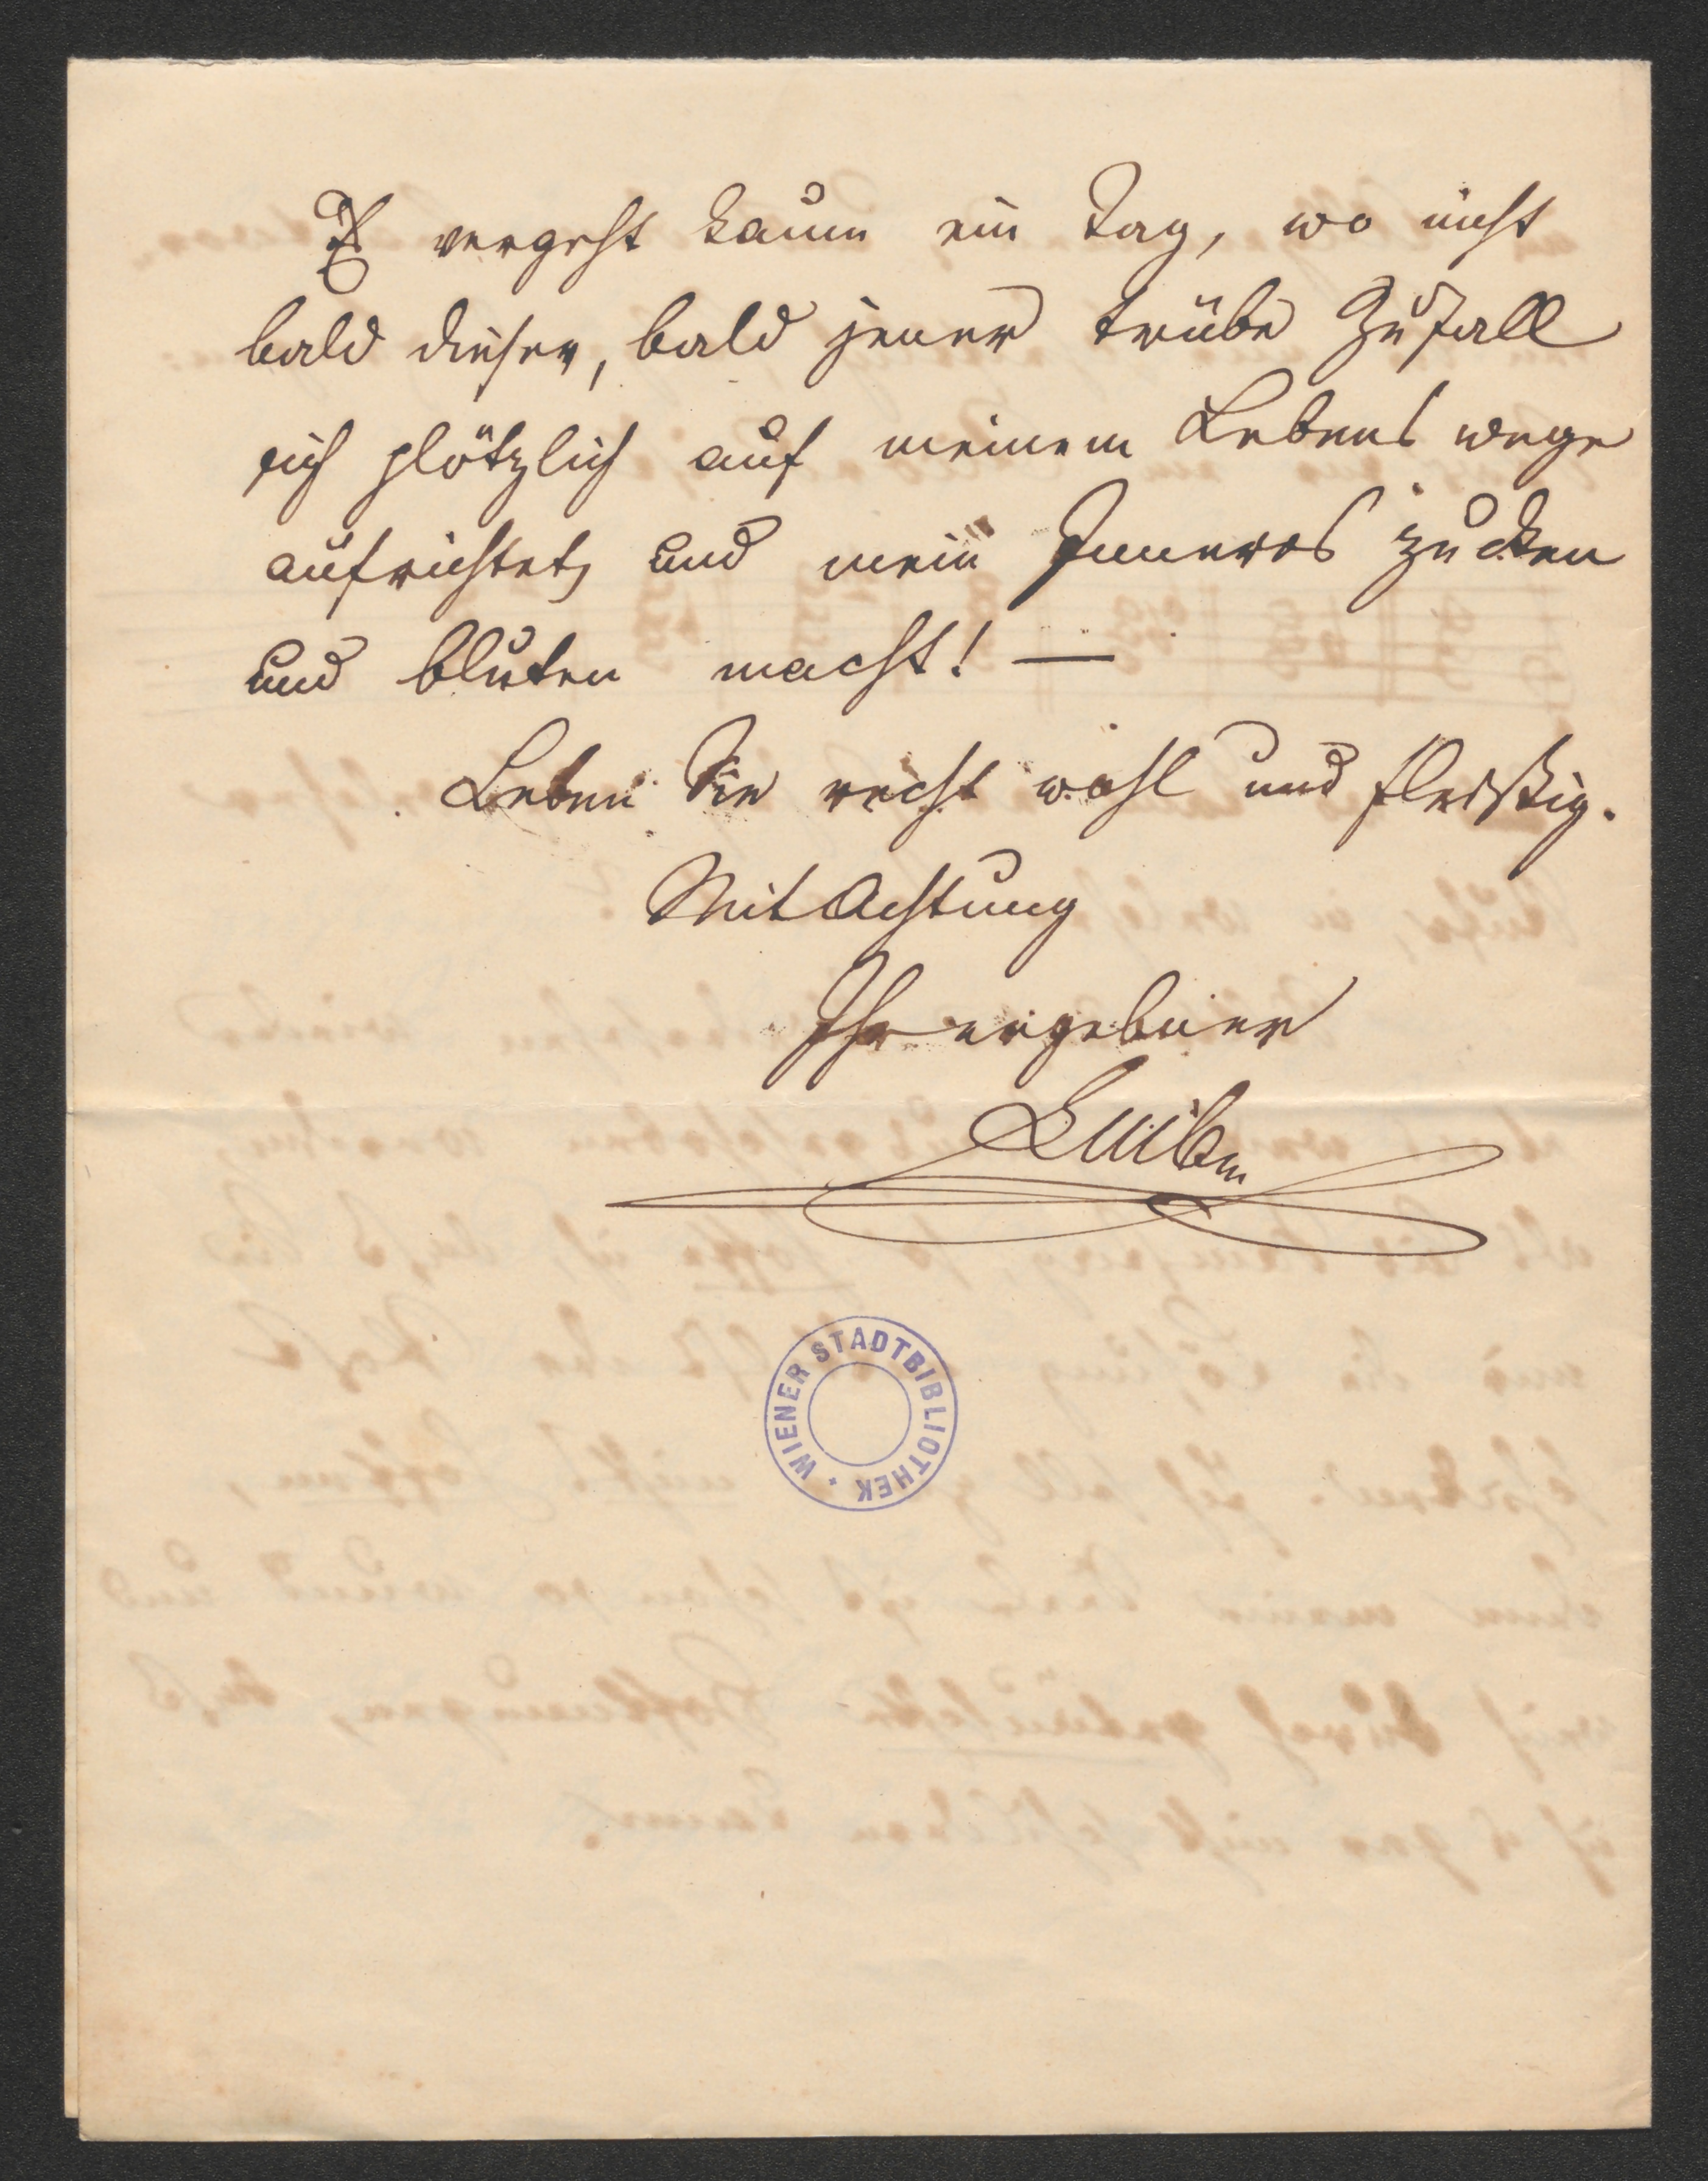 Es vergeht kaum ein Tag, wo nicht
bald dieser, bald jener trübe Zufall
sich plötzlich auf meinem Lebens wege
aufrichtet, und mein Inneres zucken
und bluten macht! —
Leben Sie recht wohl und fleißig.
Mit Achtung
Ihr ergebner
WIENER STADTBIBLIOTHEK